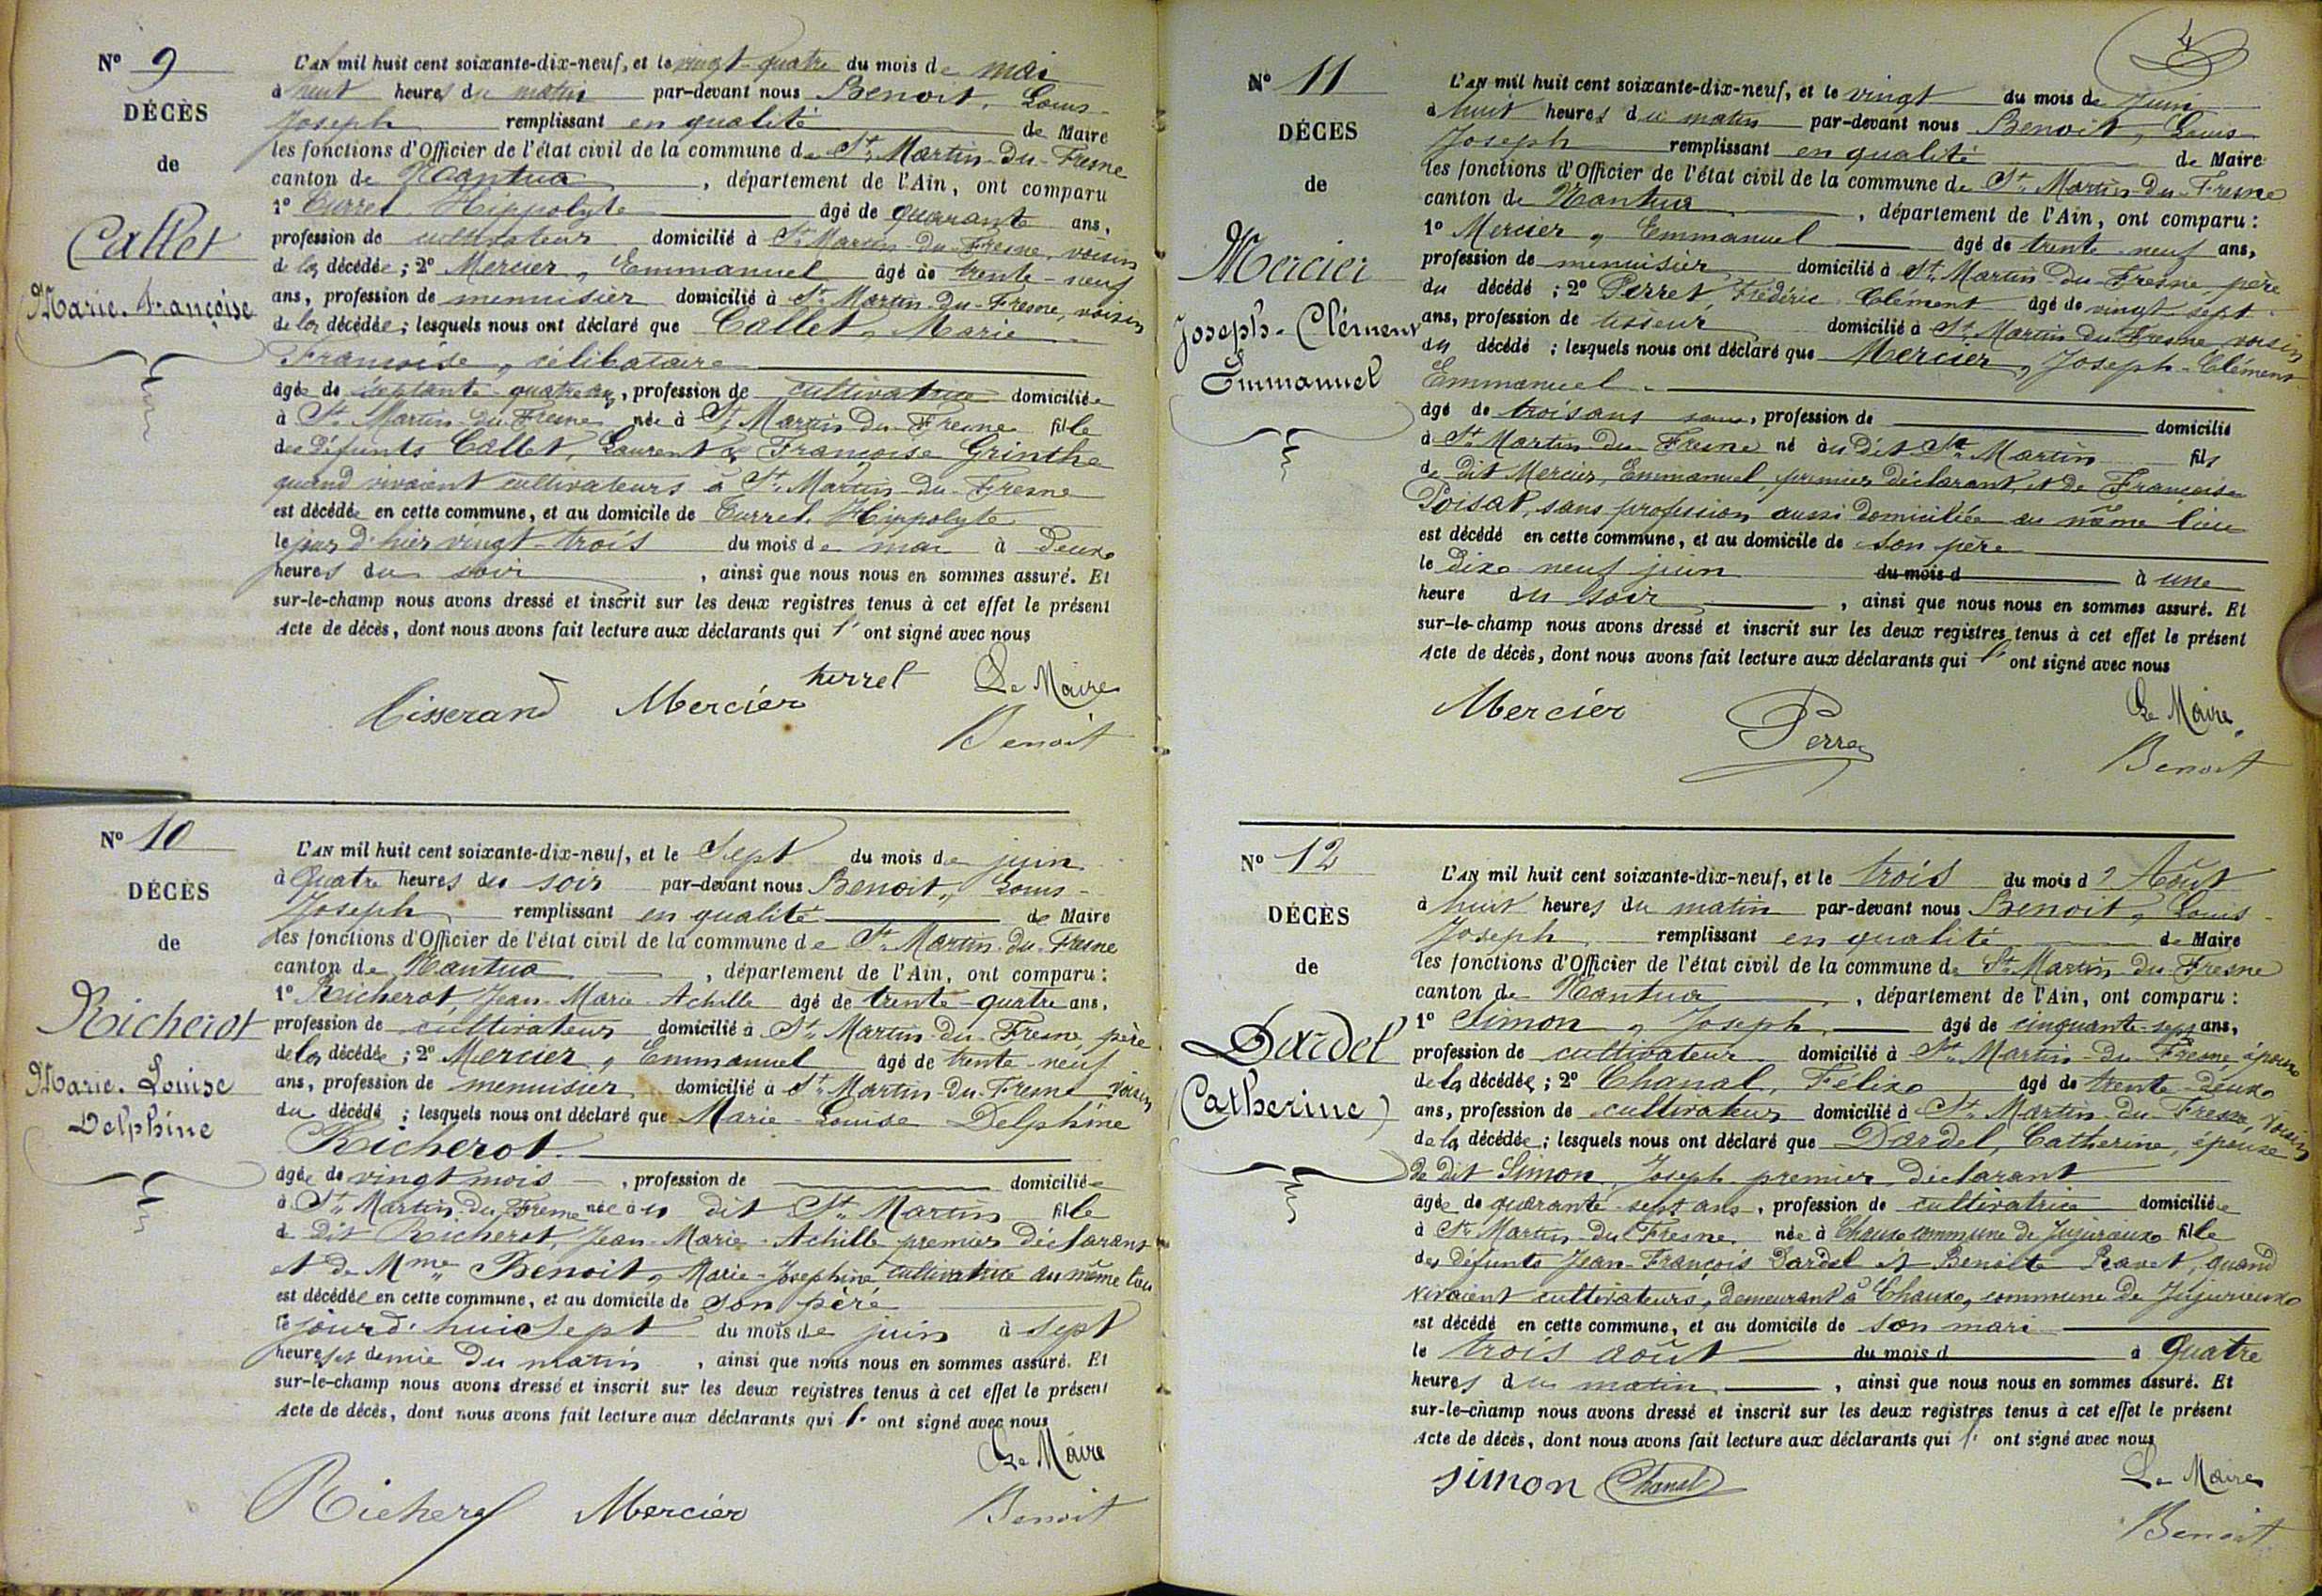 N° 9
DÉCÈS
de
Callet
Marie-Françoise
L'AN mil huit cent soixante-dix-neuf, et le vingt-quatre du mois de mai
à huit heures du matin par-devant nous Benoit, Louis-
Joseph remplissant en qualité de Maire
les fonctions d'Officier de l'état civil de la commune de St. Martin-du-Fresne
canton de Nantua, département de l'Ain, ont comparu
1° Hippolyte âgé de quarante ans,
profession de cultivateur domicilié à St. Martin-du-Fresne, voisin
de la décédée ; 2° Mercier, Emmanuel âgé de trente-neuf
ans, profession de menuisier domicilié à St. Martin-du-Fresne, voisin
de la décédée ; lesquels nous ont déclaré que Callet, Marie
Françoise, célibataire
âgée de septante-quatre ans, profession de cultivatrice domiciliée
à St. Martin-du-Fresne née à St. Martin-du-Fresne fille
des défunts Callet, Laurent & Françoise Grinthe
quand vivaient cultivateurs à St. Martin-du-Fresne
est décédée en cette commune, et au domicile de Hippolyte
le jour d'hier vingt-trois du mois de mai à deux
heures du soir, ainsi que nous nous en sommes assuré. Et
sur-le-champ nous avons dressé et inscrit sur les deux registres tenus à cet effet le présent
Acte de décès, dont nous avons fait lecture aux déclarants qui l'ont signé avec nous
Tisserand Mercier Le Maire
Benoit
N° 10
DÉCÈS
de
Richerot
Marie-Louise
Delphine
L'AN mil huit cent soixante-dix-neuf, et le Sept du mois de juin
à Quatre heures du soir par-devant nous Benoit, Louis-
Joseph remplissant en qualité de Maire
les fonctions d'Officier de l'état civil de la commune de St. Martin-du-Fresne
canton de Nantua, département de l'Ain, ont comparu :
1° Richerot, Jean-Marie-Achille âgé de trente-quatre ans,
profession de cultivateur domicilié à St. Martin-du-Fresne, père
de la décédée ; 2° Mercier, Emmanuel âgé de trente-neuf
ans, profession de menuisier domicilié à St. Martin-du-Fresne voisin
du décédé ; lesquels nous ont déclaré que Marie-Louise Delphine
Richerot
âgée de vingt mois, profession de domiciliée
à St. Martin-du-Fresne née au dit St. Martin fille
de dit Richerot, Jean-Marie-Achille premier déclarant
et de Mme Benoit, Marie-Josephine cultivatrice au même lieu
est décédée en cette commune, et au domicile de son père
le jourd'hui Sept du mois de juin à sept
heures et demie du matin, ainsi que nous nous en sommes assuré. Et
sur-le-champ nous avons dressé et inscrit sur les deux registres tenus à cet effet le présent
Acte de décès, dont nous avons fait lecture aux déclarants qui l'ont signé avec nous
Le Maire
Richerot Mercier Benoit
4
N° 11
DÉCÈS
de
Mercier
Joseph-Clément
Emmanuel
L'AN mil huit cent soixante-dix-neuf, et le vingt du mois de juin
à huit heures du matin par-devant nous Benoit, Louis
Joseph remplissant en qualité de Maire
les fonctions d'Officier de l'état civil de la commune de St. Martin-du-Fresne
canton de Nantua, département de l'Ain, ont comparu :
1° Mercier, Emmanuel âgé de trente-neuf ans,
profession de menuisier domicilié à St. Martin-du-Fresne père
du décédé ; 2° Perret, Frédéric-Clément âgé de vingt-sept
ans, profession de tisseur domicilié à St. Martin-du-Fresne voisin
du décédé ; lesquels nous ont déclaré que Mercier, Joseph-Clément
Emmanuel
âgé de trois ans, profession de domicilié
à St. Martin-du-Fresne né au dit St. Martin fils
de dit Mercier, Emmanuel, premier déclarant, et de Françoise
Poisat, sans profession aussi domiciliée au même lieu
est décédé en cette commune, et au domicile de son père
le dix-neuf juin du mois d à une
heure du soir, ainsi que nous nous en sommes assuré. Et
sur-le-champ nous avons dressé et inscrit sur les deux registres tenus à cet effet le présent
Acte de décès, dont nous avons fait lecture aux déclarants qui l'ont signé avec nous
Mercier Perret Le Maire
Benoit
N° 12
DÉCÈS
de
Dardel
(Catherine)
L'AN mil huit cent soixante-dix-neuf, et le trois du mois d'Août
à huit heures du matin par-devant nous Benoit, Louis-
Joseph remplissant en qualité de Maire
les fonctions d'Officier de l'état civil de la commune de St. Martin-du-Fresne
canton de Nantua, département de l'Ain, ont comparu :
1° Simon, Joseph âgé de cinquante-sept ans,
profession de cultivateur domicilié à St. Martin-du-Fresne, époux
de la décédée ; 2° Chanal, Félix âgé de trente-deux
ans, profession de cultivateur domicilié à St. Martin-du-Fresne, voisin
de la décédée ; lesquels nous ont déclaré que Dardel, Catherine, épouse
de dit Simon, Joseph premier déclarant
âgée de quarante-sept ans, profession de cultivatrice domiciliée
à St. Martin-du-Fresne née à Chaux commune de Jujurieux fille
des défunts Jean-François Dardel et Benoîte Ravet, quand
vivaient cultivateurs, demeurant à Chaux, commune de Jujurieux
est décédé en cette commune, et au domicile de son mari
le trois août du mois d à Quatre
heures du matin, ainsi que nous nous en sommes assuré. Et
sur-le-champ nous avons dressé et inscrit sur les deux registres tenus à cet effet le présent
Acte de décès, dont nous avons fait lecture aux déclarants qui l'ont signé avec nous
simon Chanal Le Maire
Benoit